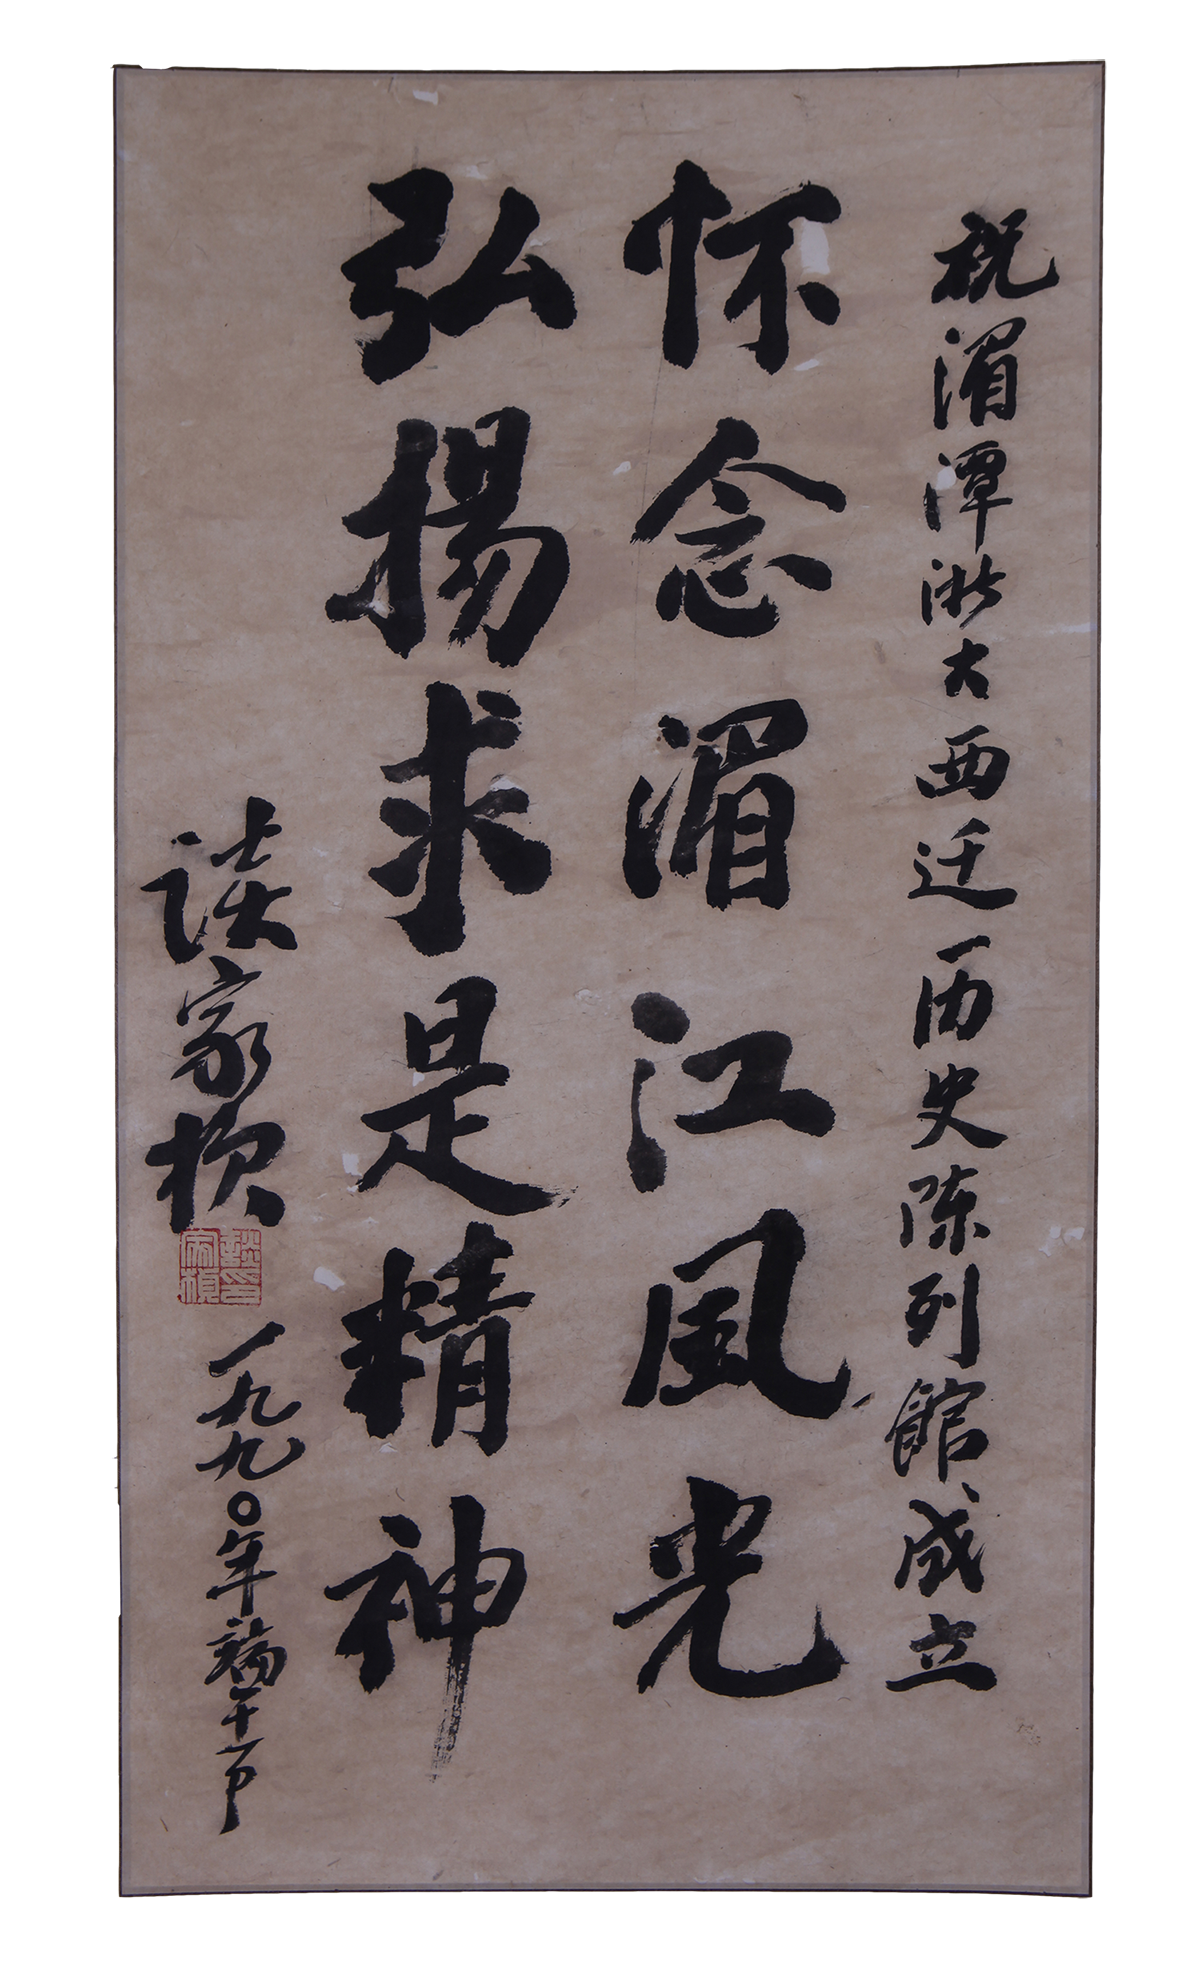 祝湄潭浙大西迁历史陈列館成立
怀念湄江风光
弘揚求是精神
谈家桢
談家楨印
一九九〇年端午节